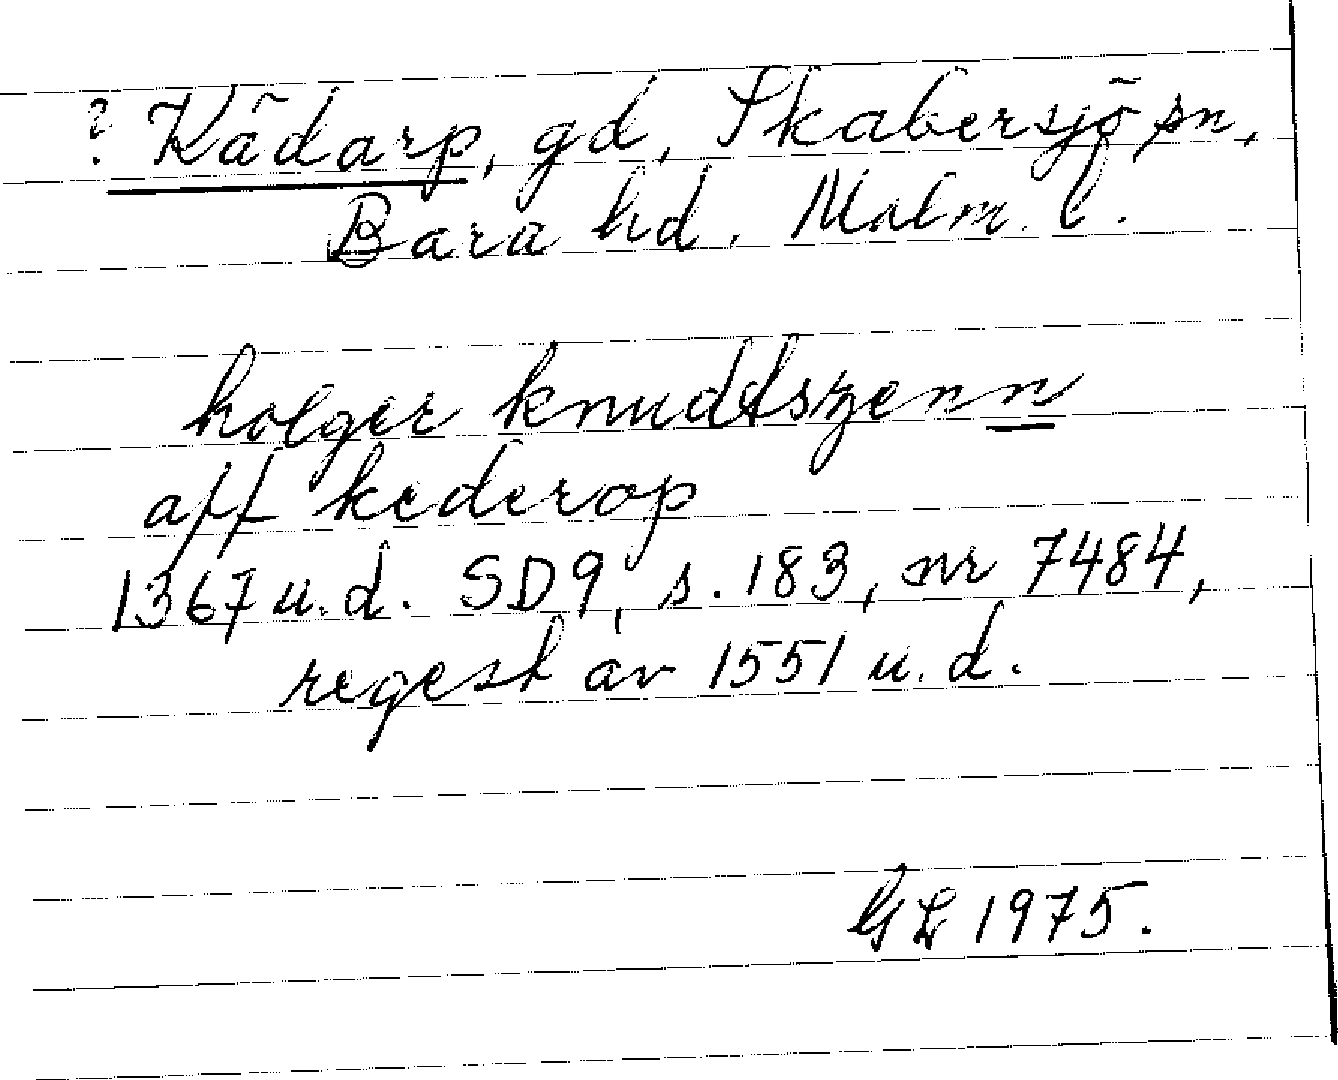 ? Kädarp, gd, Skabersjö sn,
Bara hd. Malm. l.
holger knudtszenn
aff kederop
1367 u.d. SD9, s. 183, nr 7484,
regest av 1551 u.d.
GL 1975.